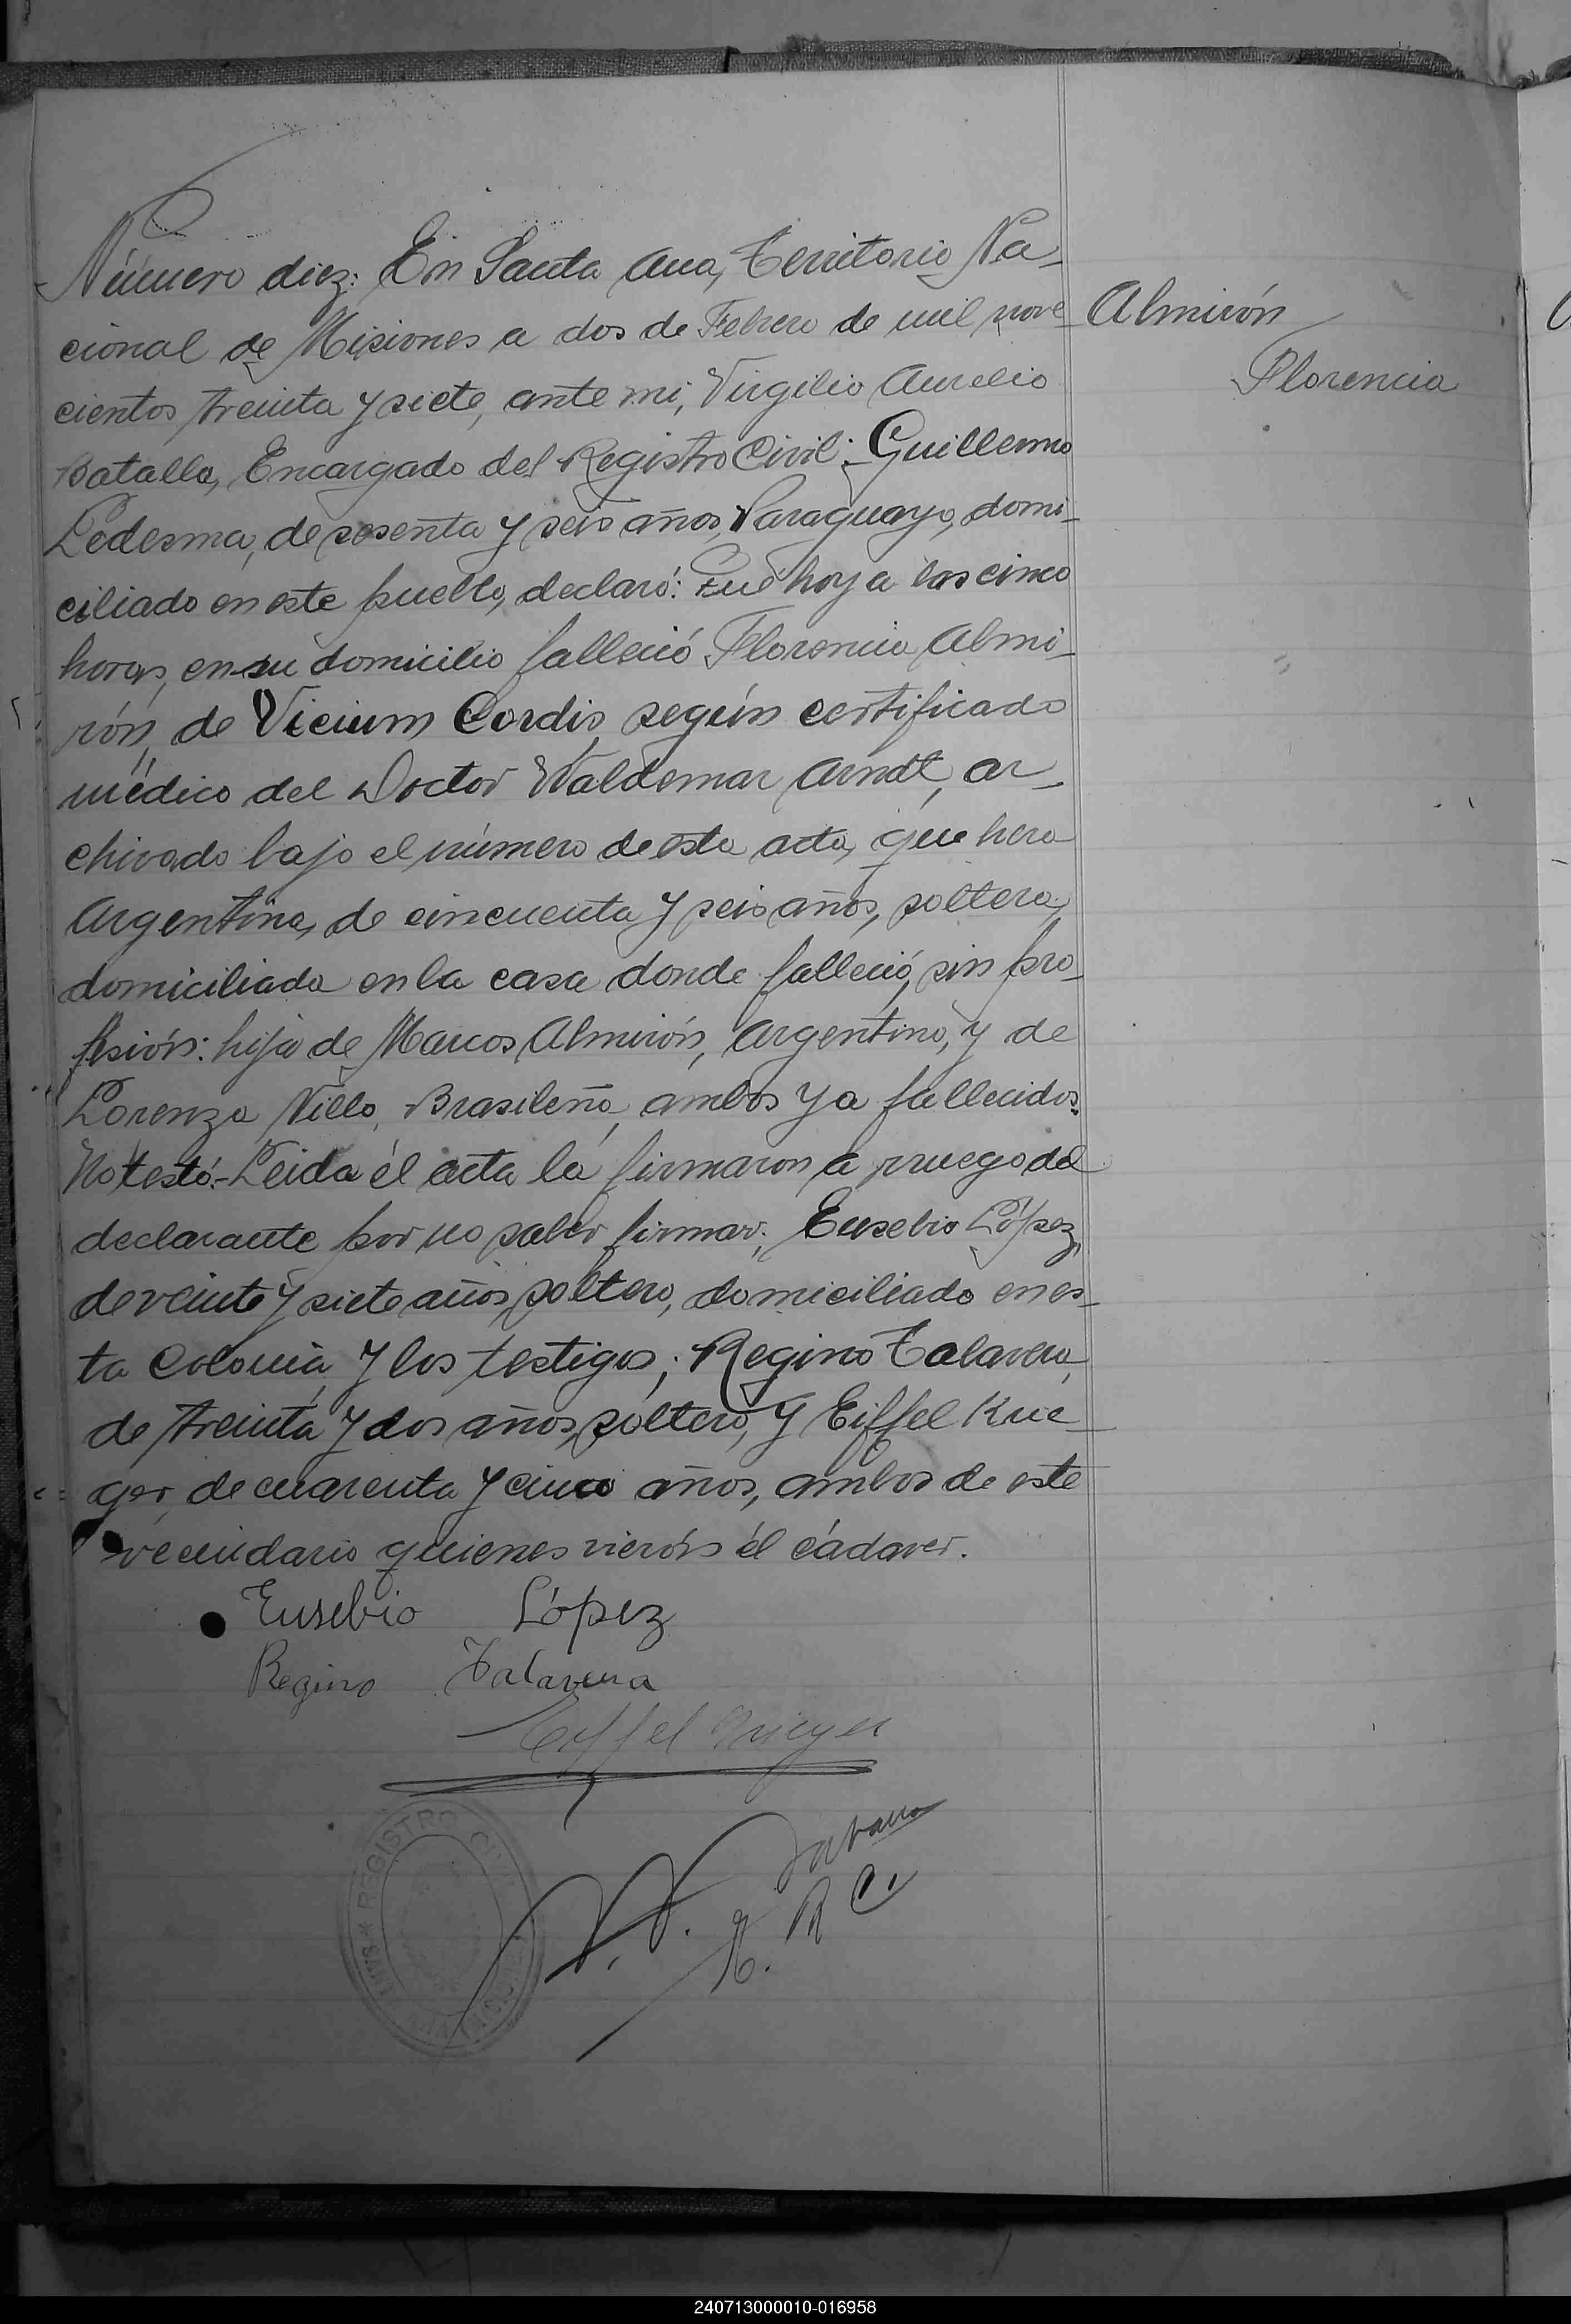 Número diez: En Santa Ana, Territorio Na-
cional de Misiones a dos de Febrero de mil nove-
cientos treinta y siete, ante mi, Virgilio Aurelio
Batalla, Encargado del Registro Civil: Guillermo
Ledesma, de sesenta y seis años, Paraguayo, domi-
ciliado en este pueblo, declaró: Qué hoy a las cinco
horas, en su domicilio falleció Florencia Almi-
rón, de Vicium Cordis, según certificado
médico del Doctor Waldemar Arndt, ar-
chivado bajo el número de esta acta, que hera
Argentina, de cincuenta y seis años, soltera,
domiciliada en la casa donde falleció, sin pro-
fesión: hija de Marcos Almirón, Argentino, y de
Lorenza Villa, Brasileña, ambos ya fallecidos.
No testó.- Leida él acta la firmaron a rruego del
declarante por no saber firmar; Eusebio López,
de veinte y siete años, soltero, domiciliado en es-
ta Colonia, y los testigos; Regino Talavera,
de treinta y dos años, soltero, y Eiffel Krie-
ger, de cuarenta y cinco años, ambos de este
vecindario quienes vierón él cádaver.
Almirón
Florencia
Eusebio López
Regino Talavera
Eiffel Krieger
REGISTRO CIVIL
E. R C.
240713000010-016958